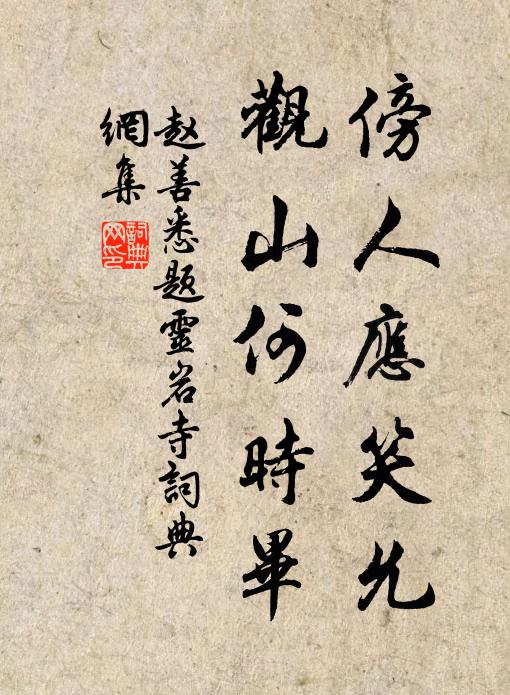 傍人應笑允
觀山何時畢
赵善悉題靈岩寺詞典
網集
詞典
网印